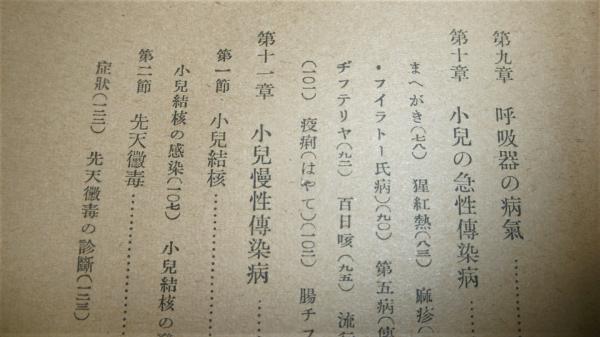 第九章 呼吸器の病氣
第十章 小兒の急性傳染病
まへがき(七八) 猩紅熱(八三) 麻疹(
・フイラトー氏病)(九〇) 第五病(傳
ヂフテリヤ(九二) 百日咳(九五) 流行
(一〇一) 疫痢(はやて)(一〇二) 腸チフ
第十一章 小兒慢性傳染病
第一節 小兒結核
小兒結核の感染(一〇七) 小兒結核の
第二節 先天黴毒
症狀(一二三) 先天黴毒の診斷(一二三)